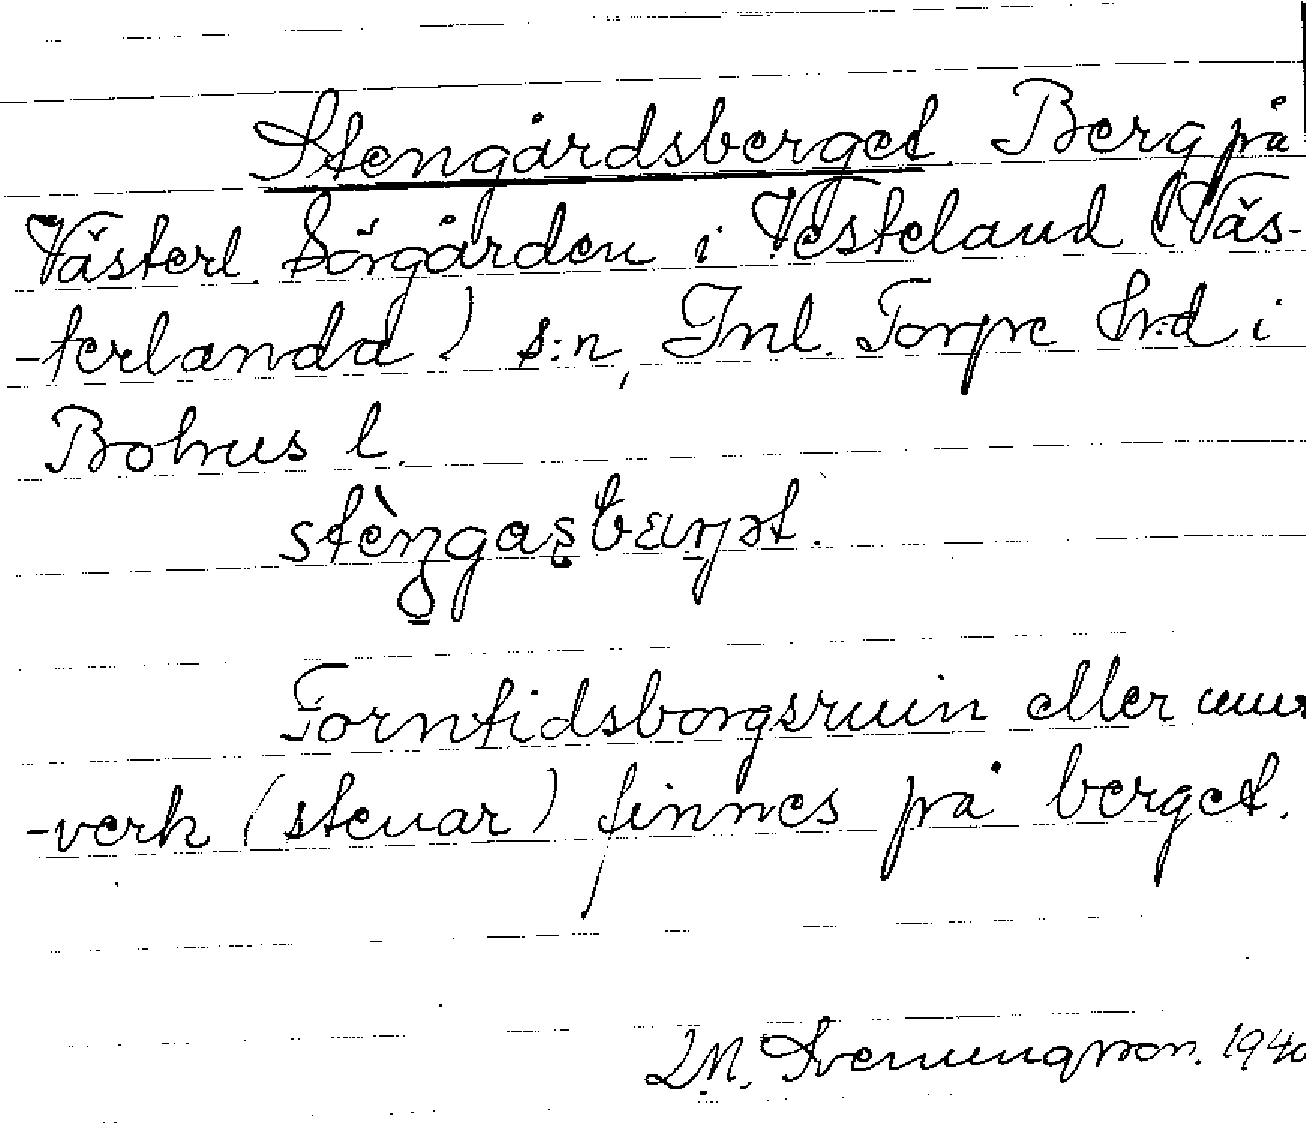 Stengårdsberget Berg på
Västerl. Sörgården i Vesteland (Väs-
-terlanda) s:n, Inl. Torpe Hr:d i
Bohus l.
Forntidsborgsruin eller mur
-verk (stenar) finnes på berget.
M. Svenungsson. 1940